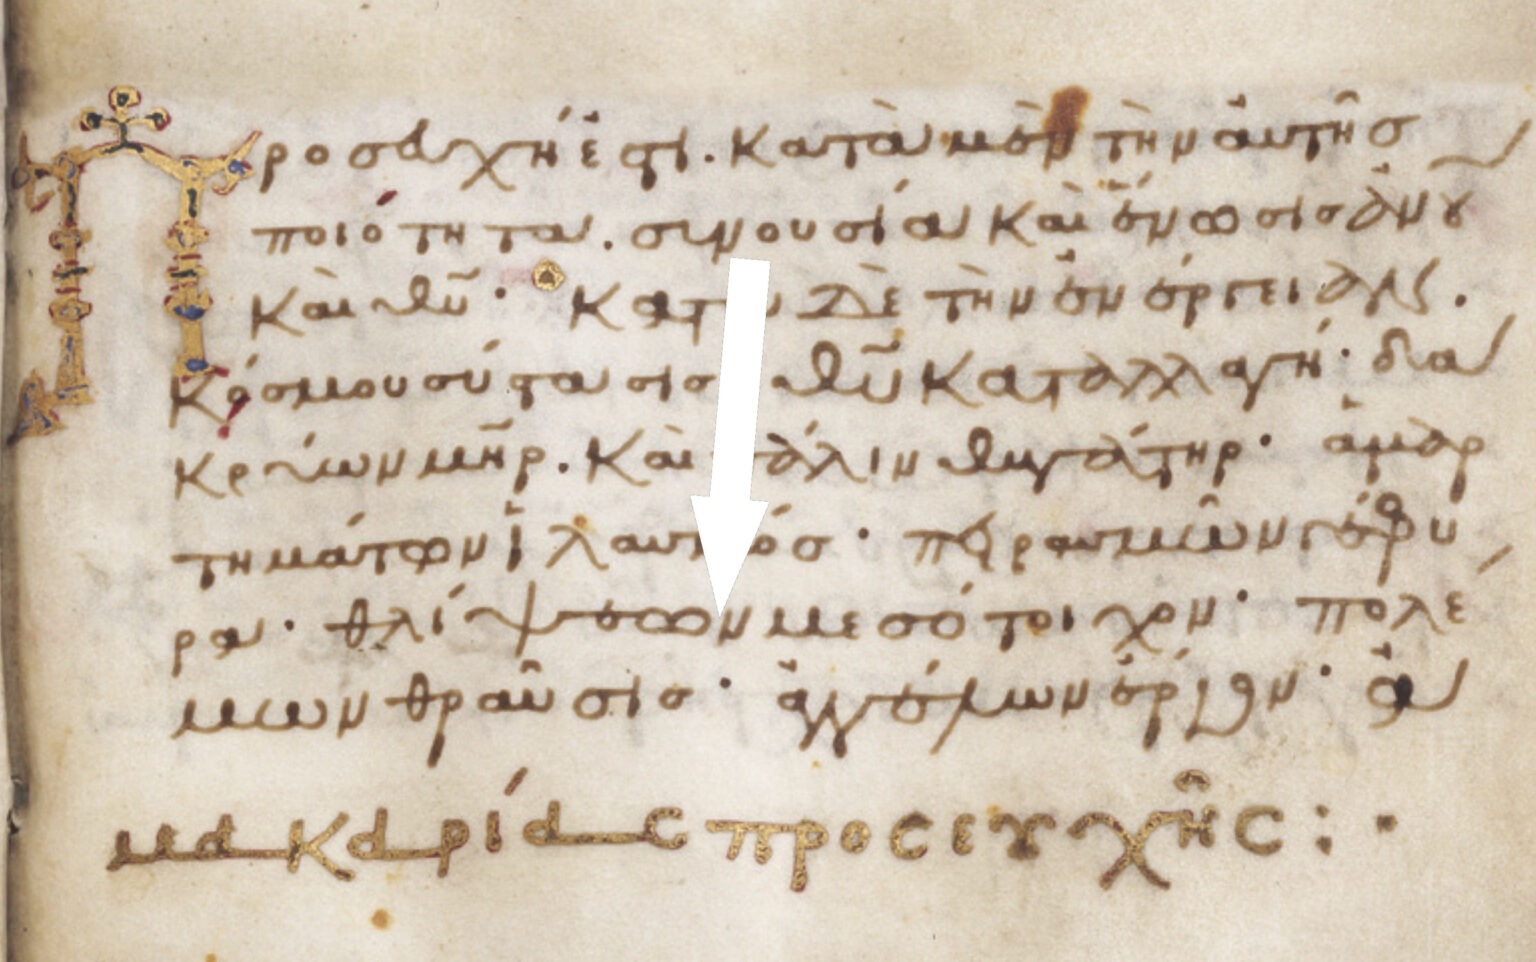 Προσευχή ἐστι. κατὰ μὲν τὴν αὐτῆς
ποιότητα. συνουσία καὶ ἕνωσις ἀνου
καὶ θυ· κατ δὲ τὴν ἐνέργειαν.
κόσμου σύστασις θυ καταλλαγή· δα
κρύων μηρ. καὶ πάλιν θυγάτηρ· ἁμαρ
τημάτων ἱλασμός· πειρασμῶν γέφυ
ρα· θλίψεων μεσότοιχον· πολέ
μων θραῦσις· ἀγγέλων ἔργον·
μακαρίας προσευχῆς:·